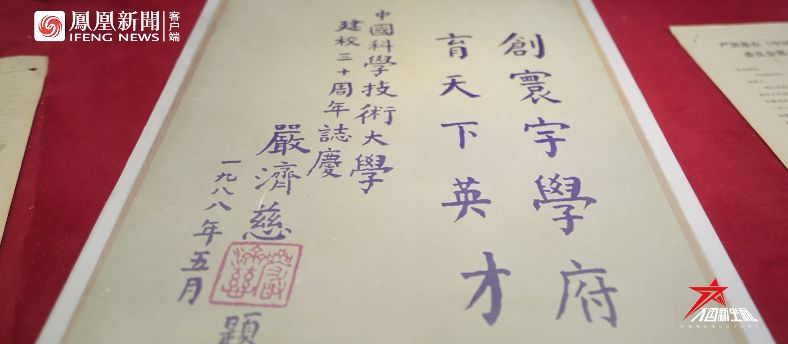 鳳凰新聞
IFENG NEWS
客户端
創寰宇學府
育天下英才
中國科學技術大學
建校三十周年誌慶
嚴濟慈
題
一九八八年五月